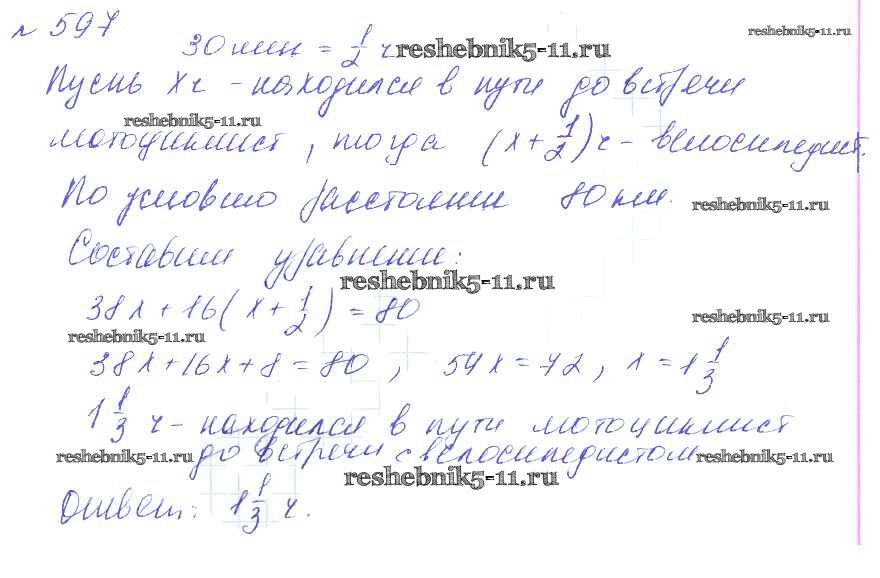 № 597
reshebnik5-11.ru
30 мин = 1/2 ч reshebnik5-11.ru
Пусть x ч - находился в пути до встречи
reshebnik5-11.ru
мотоциклист, тогда (x + 1/2) ч - велосипедист.
По условию расстояние 80 км.
reshebnik5-11.ru
Составим уравнение:
reshebnik5-11.ru
38x + 16(x + 1/2) = 80
reshebnik5-11.ru
reshebnik5-11.ru
38x + 16x + 8 = 80, 54x = 72, x = 1 1/3
1 1/3 ч - находился в пути мотоциклист
reshebnik5-11.ru до встречи с велосипедистом reshebnik5-11.ru
reshebnik5-11.ru
Ответ: 1 1/3 ч.